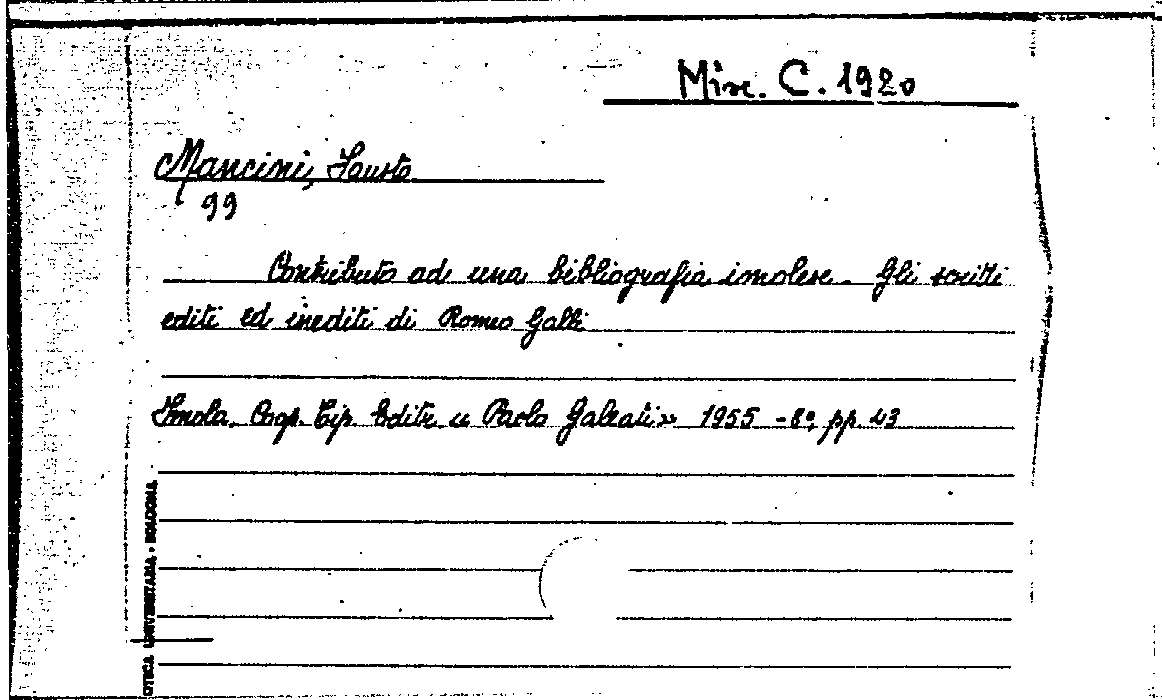 Misc. C. 1920
Mancini, Fausto
99
Contributo ad una bibliografia imolese. Gli scritti
editi ed inediti di Romeo Galli
Imola. Coop. Tip. Editr. « Paolo Galeati » 1955 - 8º, pp. 43
OTECA UNIVERSITARIA - BOLOGNA